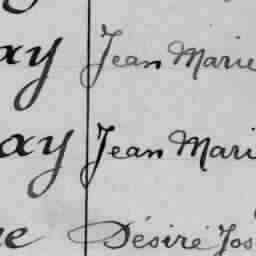 ay Jean Marie
ay Jean Mari
e Désiré Jos